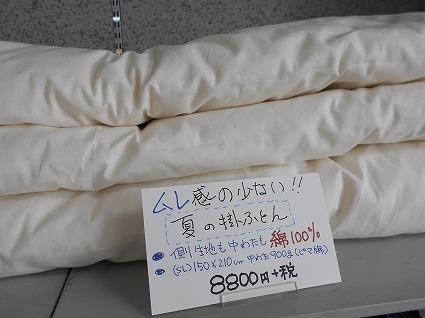 ムレ感の少ない!!
夏の掛ふとん
側生地も中わたも綿100%
(SL)150×210cm 中わた900g(ピマ綿)
8800円+税